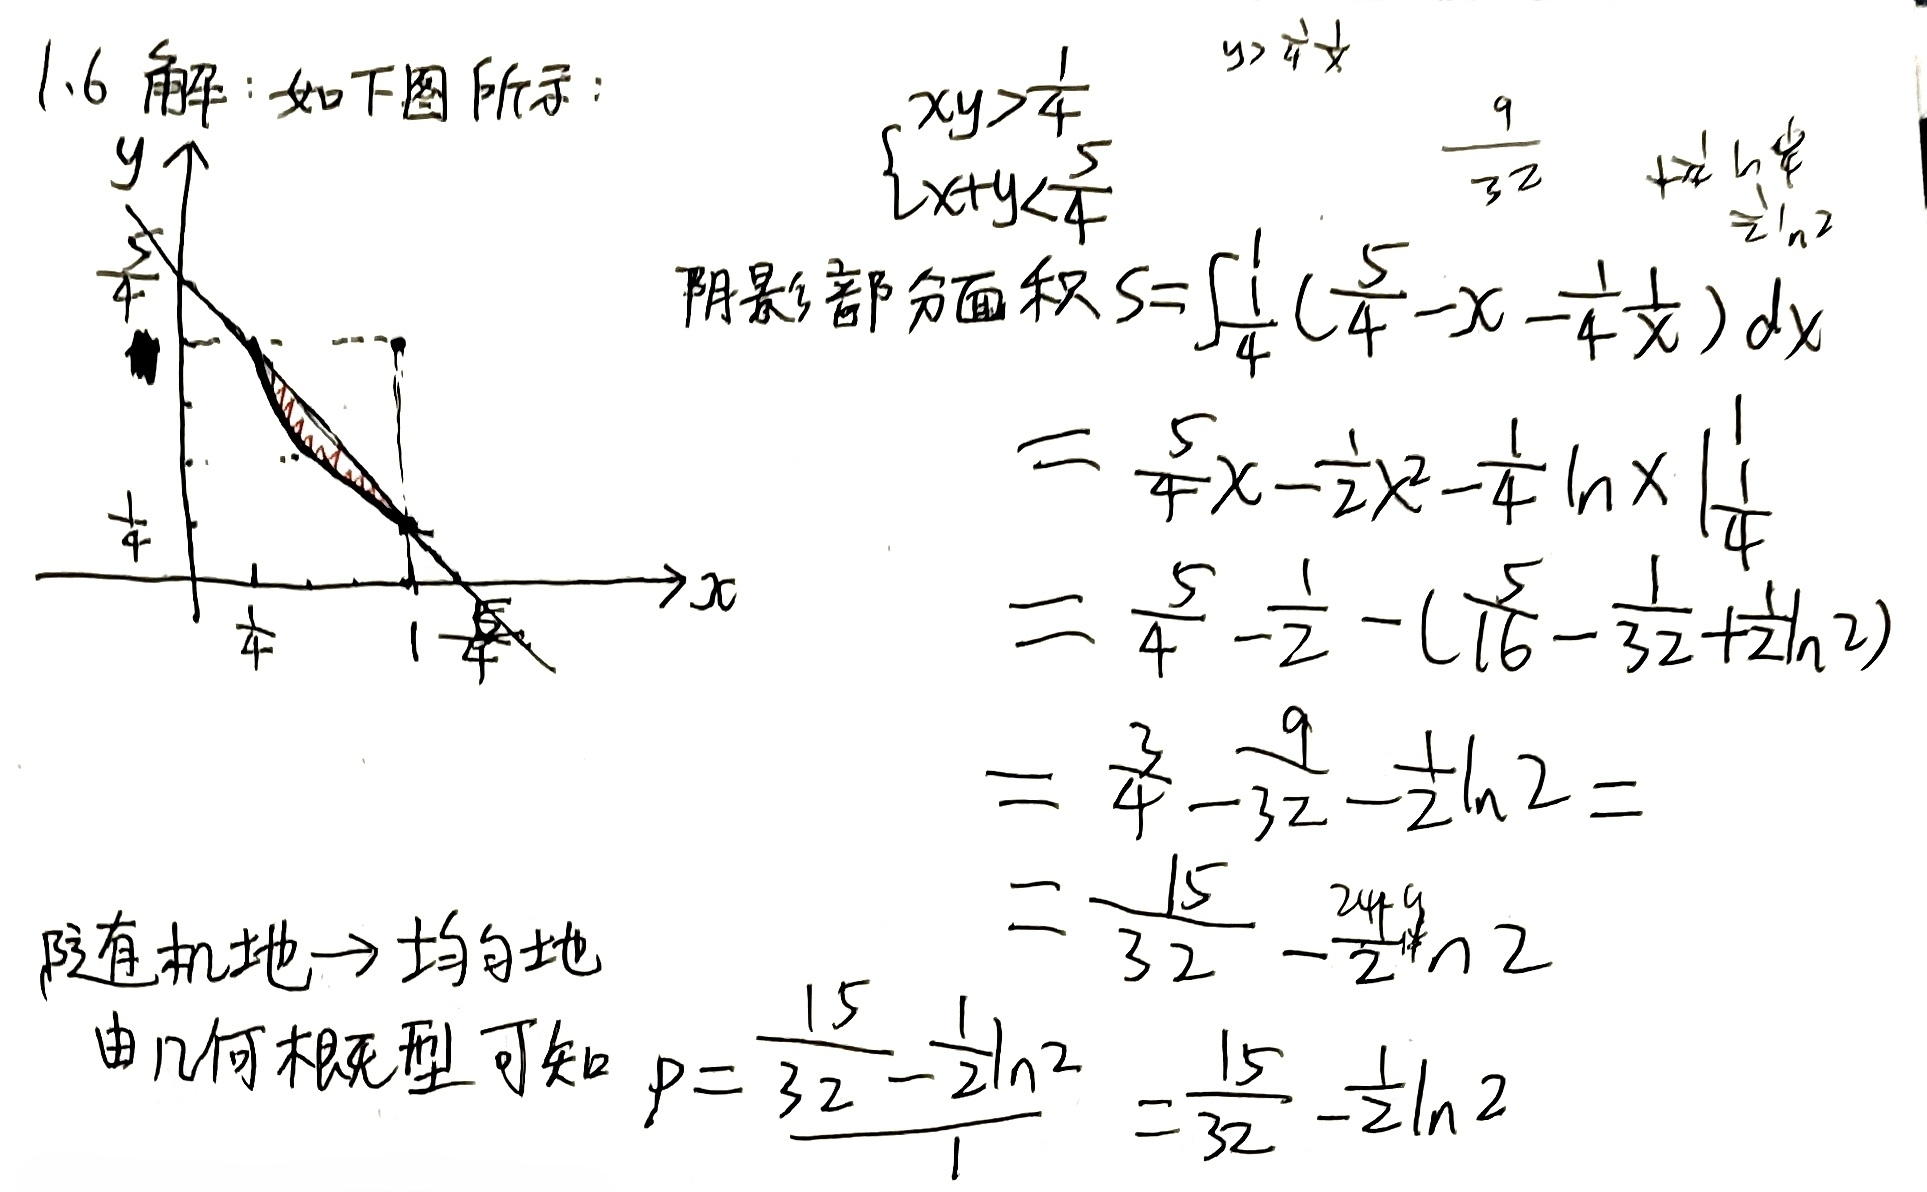 1.6 解：如下图所示：
y> 1/4 1/x
{ xy>1/4
x+y<5/4
9/32
1/2 ln2
y
5/4
1/4
1/4 1 5/4
x
阴影部分面积 S=∫_{1/4}^{1} (5/4 -x - 1/4 1/x) dx
= 5/4 x - 1/2 x² - 1/4 ln x |_{1/4}^{1}
= 5/4 - 1/2 - (5/16 - 1/32 + 1/2 ln 2)
= 3/4 - 9/32 - 1/2 ln 2 =
= 15/32 - 1/2 ln 2
随机地→均匀地
由几何概型可知 P= (15/32 - 1/2 ln2)/1 = 15/32 - 1/2 ln 2